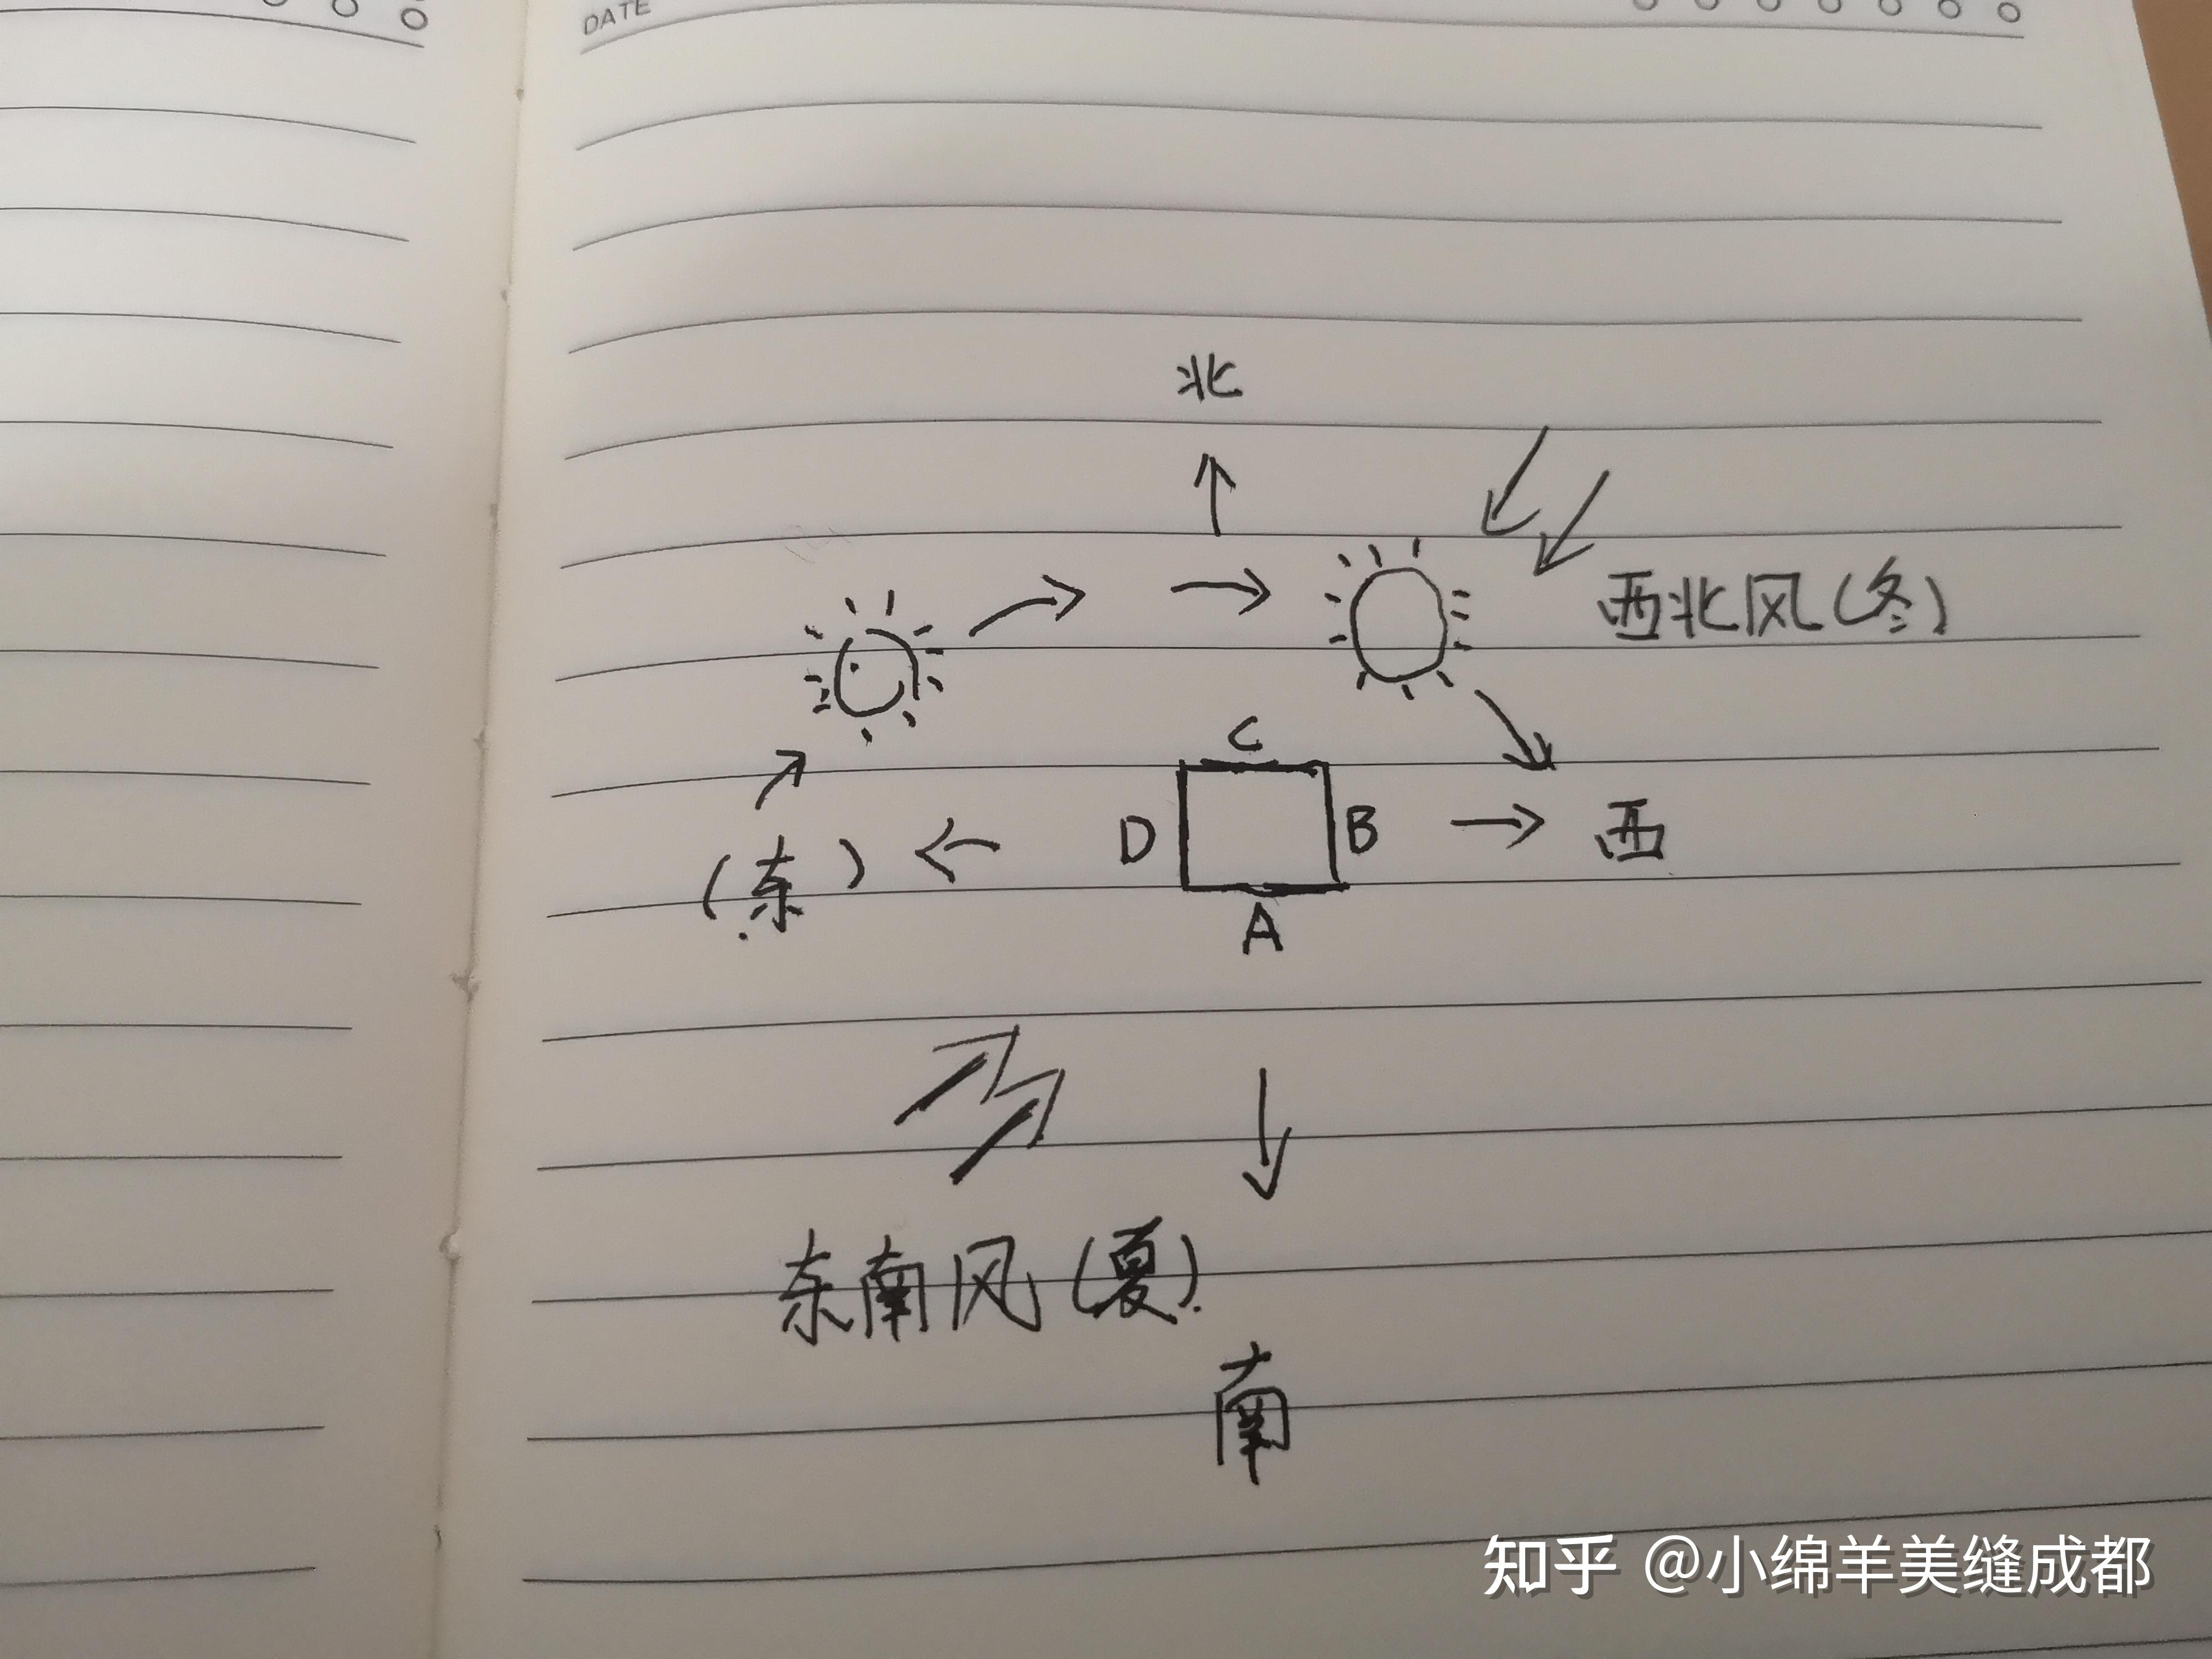 DATE
北
西北风(冬)
C
(东) D B 西
A
东南风(夏).
南
知乎 @小绵羊美缝成都